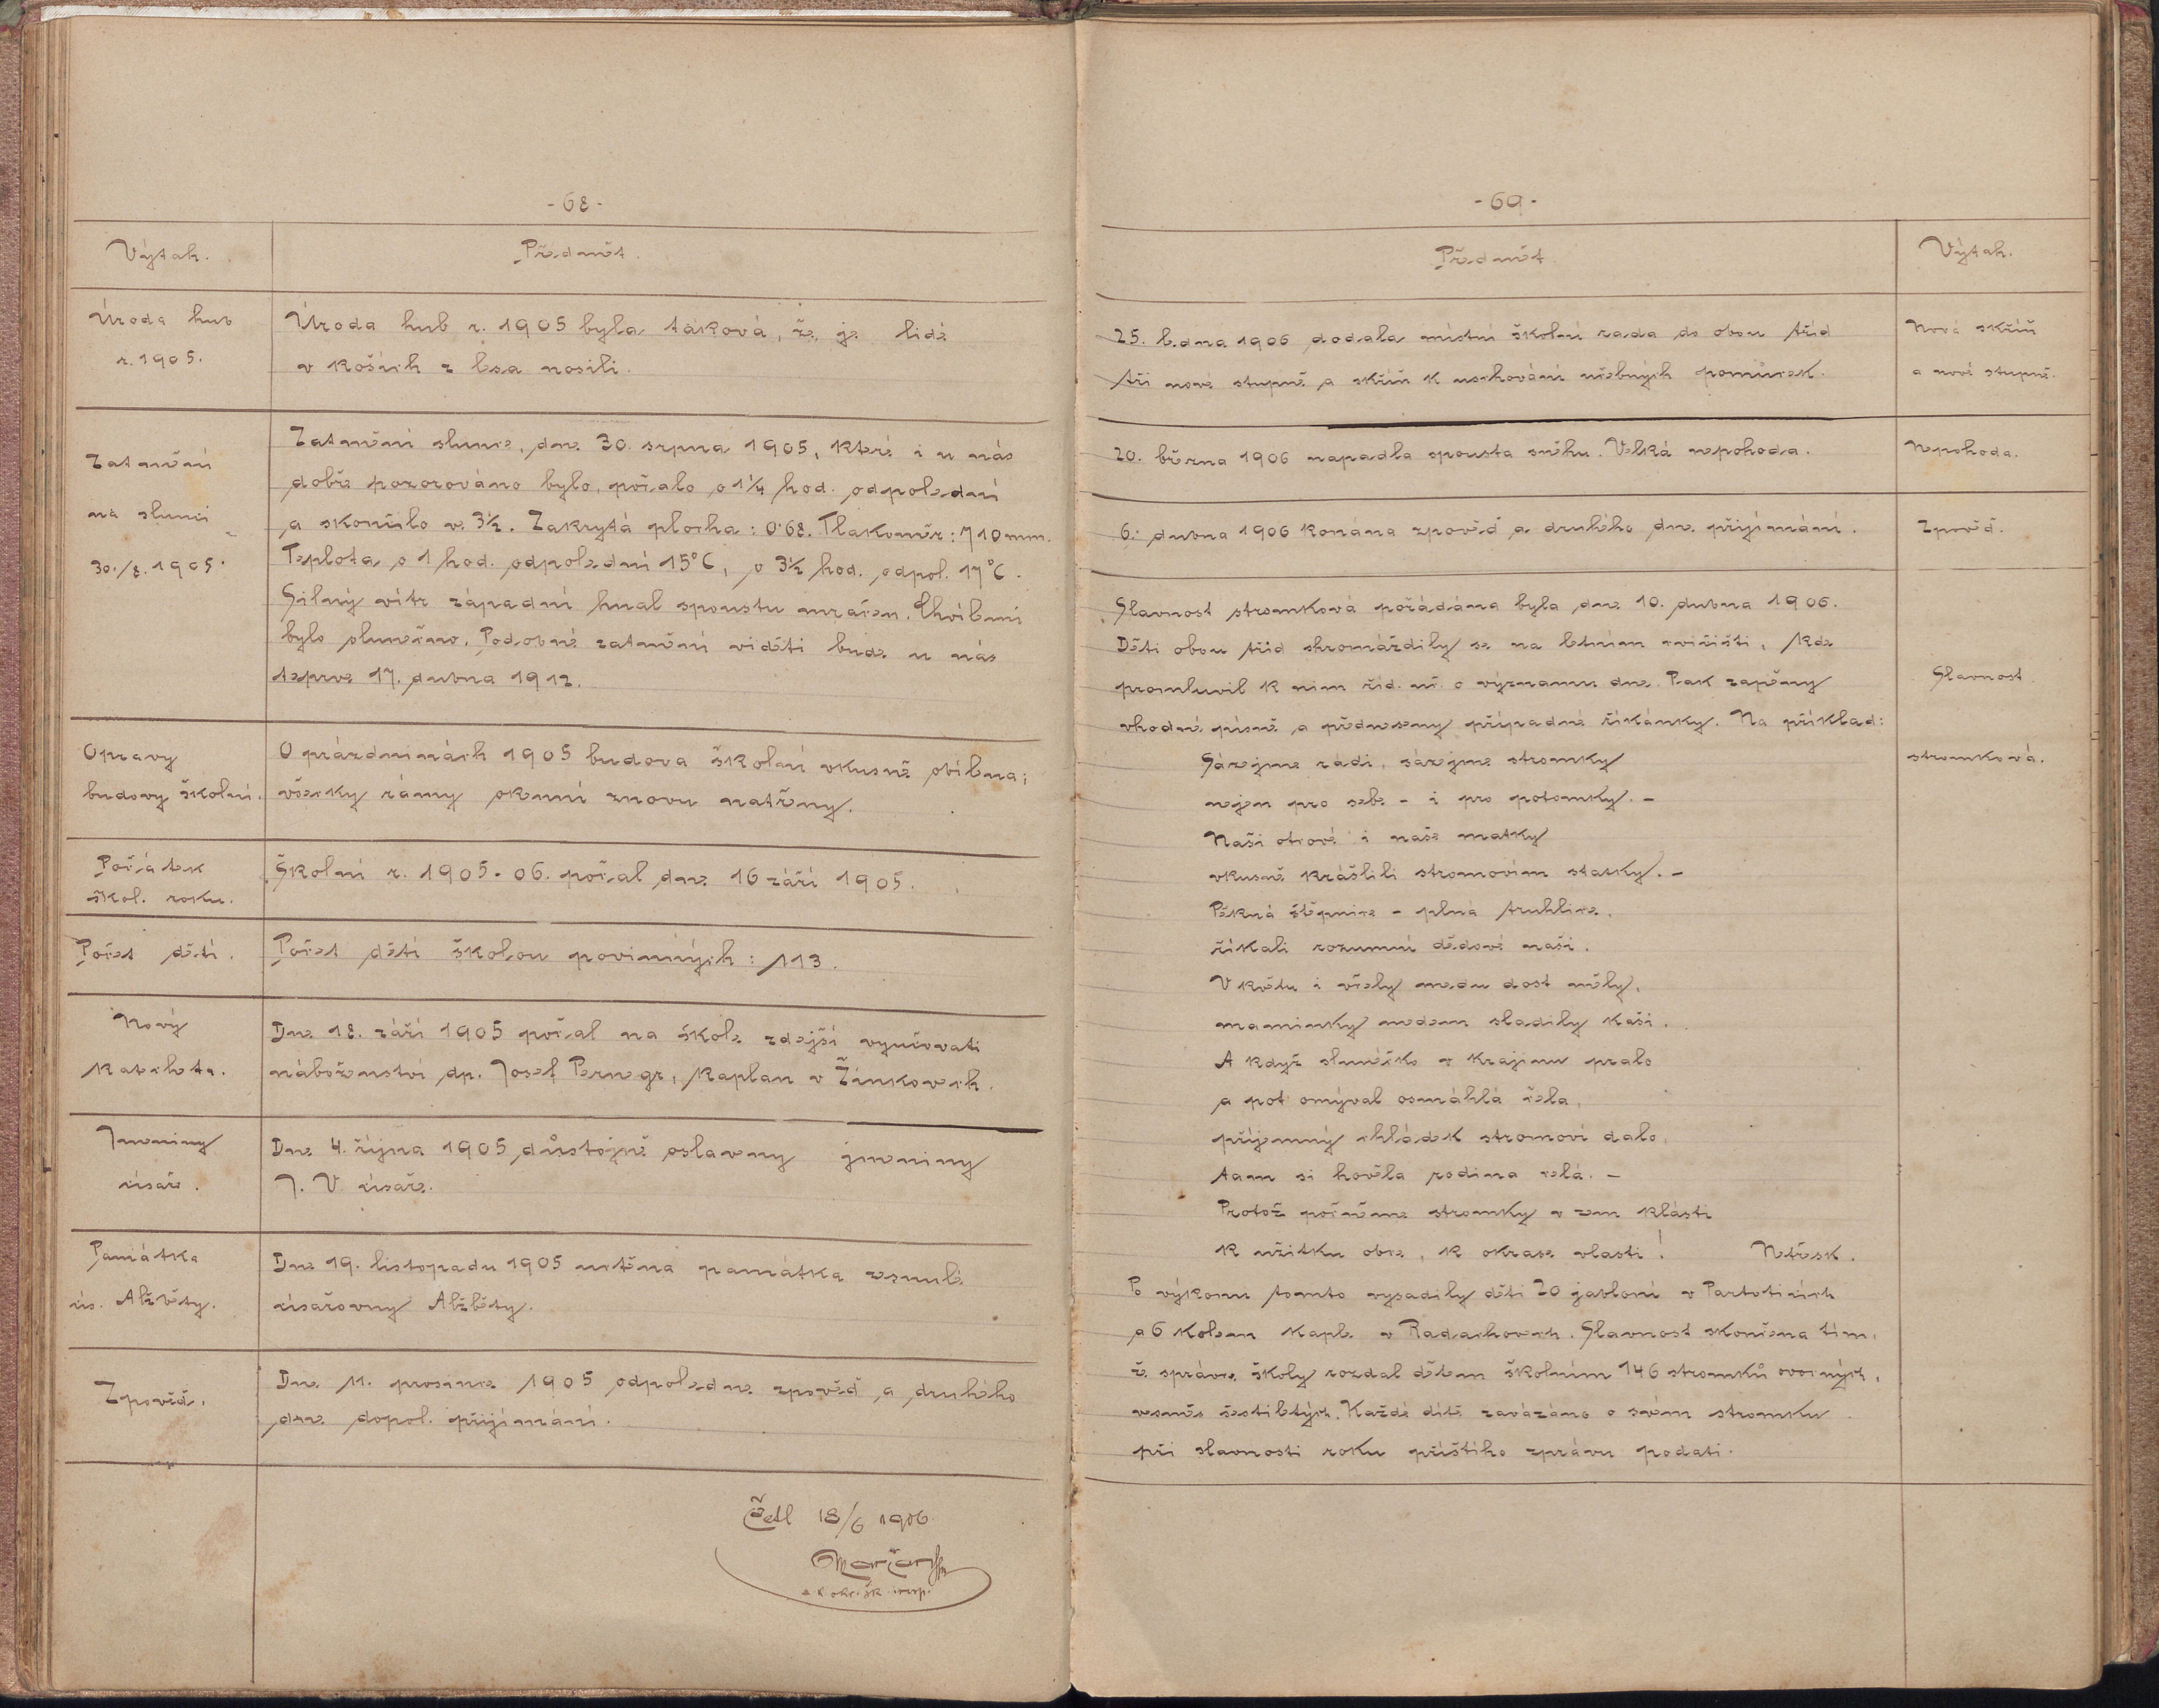 - 68 -
Výtah.
Předmět.
Úroda hub
r. 1905.
Úroda hub r. 1905 byla taková, že je lidé
v koších z lesa nosili.
Zatmění
na slunci
30./8. 1905.
Zatmění slunce, dne 30. srpna 1905, které i u nás
dobře pozorováno bylo, počalo o 1¼ hod. odpolední
a skončilo ve 3½. Zakrytá plocha: 0·68. Tlakoměr: 710 mm.
Teplota o 1 hod. odpolední 15°C, o 3½ hod. odpol. 17°C.
Silný vítr západní hnal spoustu mračen. Chvílemi
bylo slunečno. Podobné zatmění viděti bude u nás
teprve 17. dubna 1912.
Opravy
budovy školní.
O prázdninách 1905 budova školní vkusně obílena;
všecky rámy okenní znovu natřeny.
Počátek
škol. roku.
Školní r. 1905-06. počal dne 16 září 1905.
Počet dětí.
Počet dětí školou povinných: 113.
Nový
katecheta.
Dne 18. září 1905 počal na škole zdejší vyučovati
náboženství dp. Josef Pernegr, kaplan v Žinkovech.
Jmeniny
císaře.
Dne 4. října 1905 důstojně oslaveny jmeniny
J. V. císaře.
Památka
cís. Alžběty.
Dne 19. listopadu 1905 uctěna památka zesnulé
císařovny Alžběty.
Zpověď.
Dne 11. prosince 1905 odpoledne zpověď a druhého
dne dopol. přijímání.
Četl 18/6 1906
c k okr. šk. insp.
- 69 -
Předmět.
Výtah.
25. ledna 1906 dodala místní školní rada do obou tříd
tři nové stupně a skříň k uschování učebných pomůcek.
Nová skříň
a nové stupně.
20. března 1906 napadla spousta sněhu. Velká nepohoda.
Nepohoda.
6. dubna 1906 konána zpověď a druhého dne přijímání.
Zpověď.
Slavnost stromková pořádána byla dne 10. dubna 1906.
Děti obou tříd shromáždily se na letním cvičišti, kde
promluvil k nim říd. uč. o významu dne. Pak zapěny
vhodné písně a předneseny případné říkánky. Na příklad:
Slavnost
stromková.
Sázejme rádi, sázejme stromky
nejen pro sebe - i pro potomky. -
Naši otcové i naše matky
vkusně krášlili stromovím statky. -
Pěkná štěpnice - plná truhlice,
říkali rozumní dědové naši.
V květu i včely medu dost měly,
maminky medem sladily kaši.
A když slunéčko v krajinu pralo
a pot omýval osmáhlá čela,
příjemný chládek stromoví dalo,
tam si hověla rodina celá. -
Protož počněme stromky v zem klásti
k užitku obce, k okrase vlasti! Netřesk.
Po výkonu tomto vysadily děti 20 jabloní v Partoticích
a 6 kolem kaple v Radachovech. Slavnost skončena tím,
že správce školy rozdal dětem školním 146 stromků ovocných,
vesměs šestiletých. Každé dítě zavázáno o svém stromku
při slavnosti roku příštího zprávu podati.